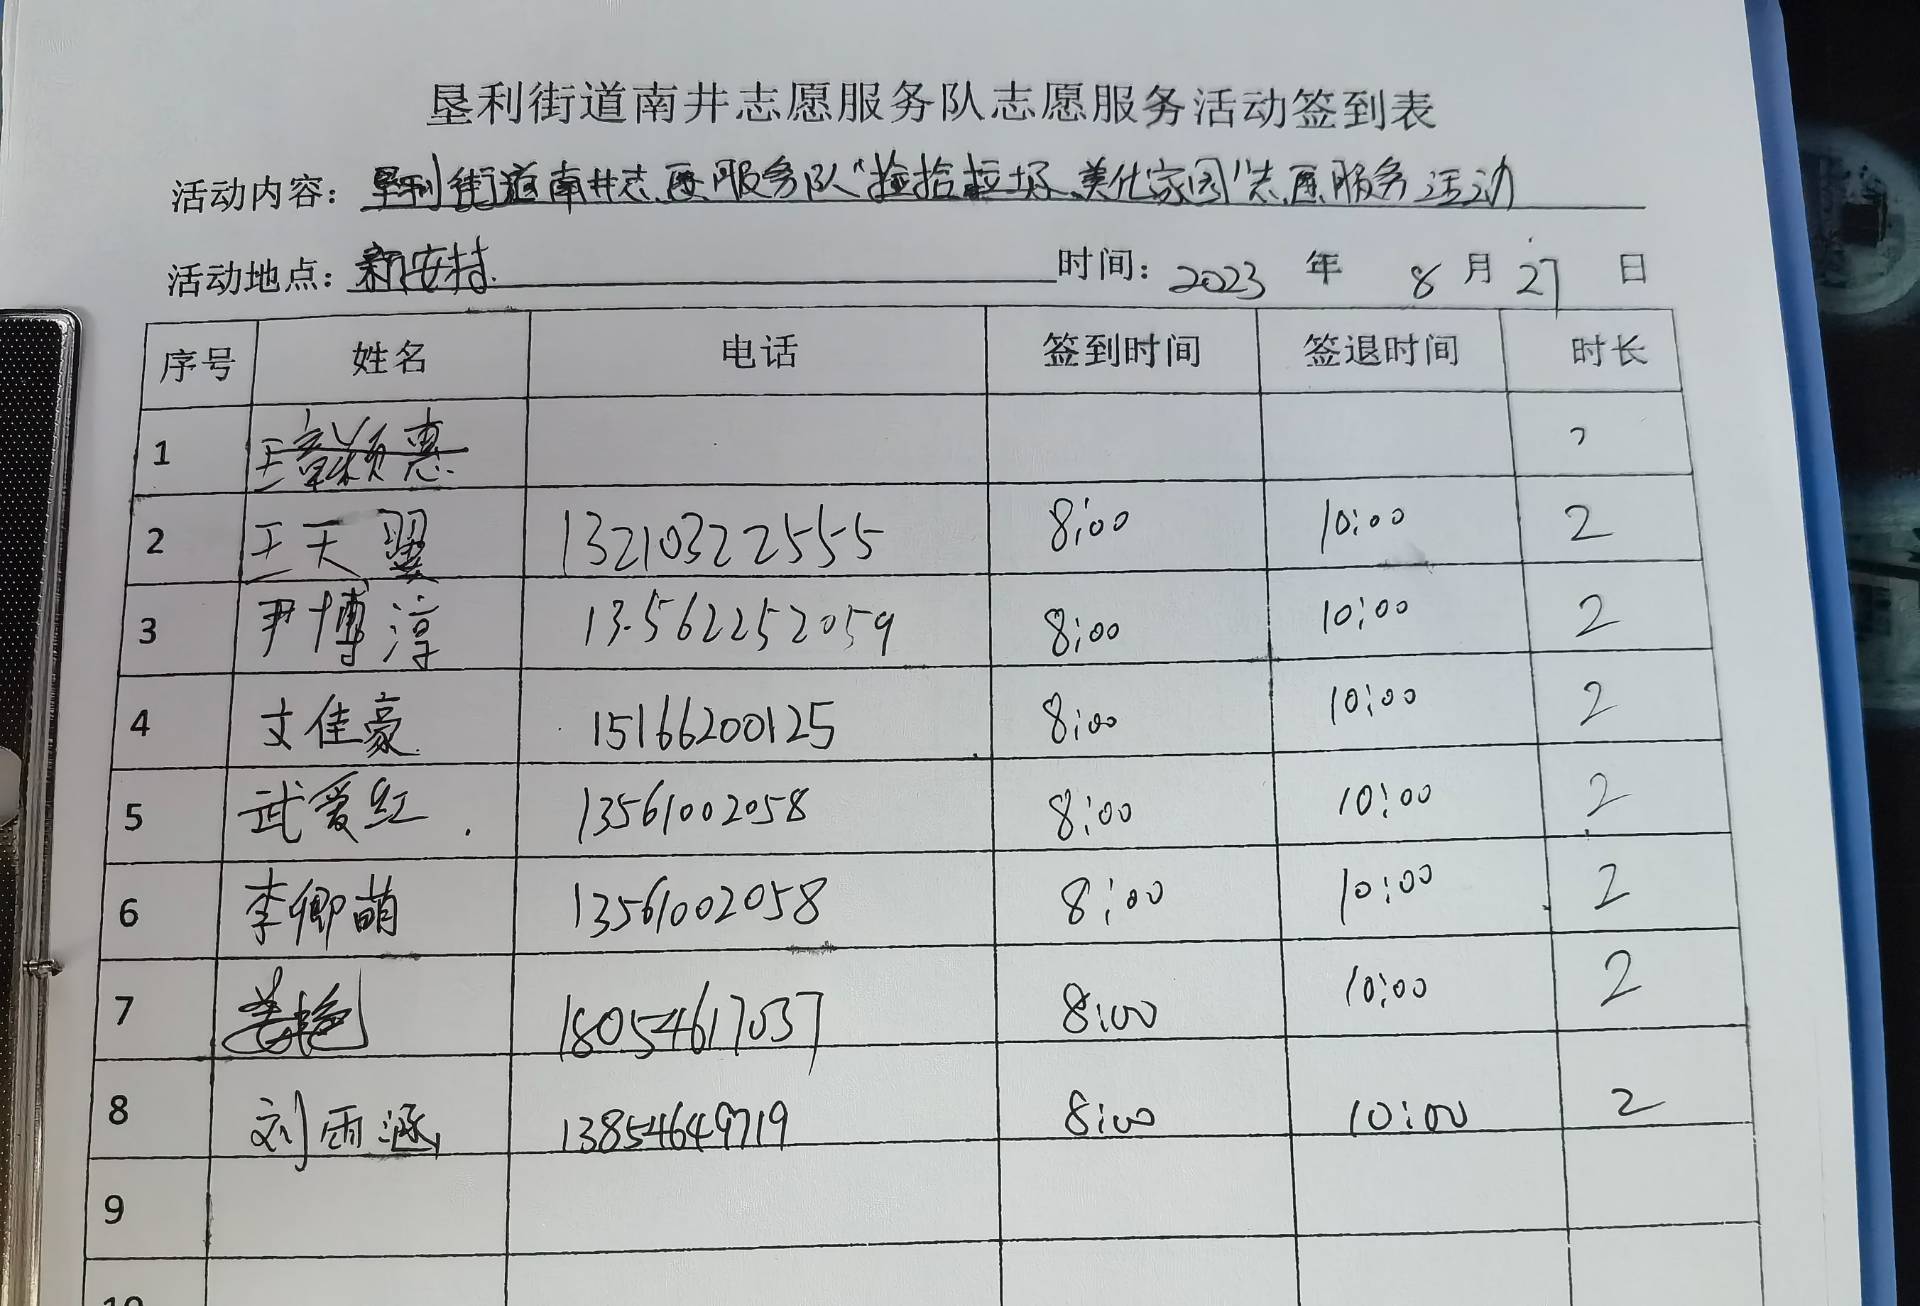 垦利街道南井志愿服务队志愿服务活动签到表
活动内容：垦利街道南井志愿服务队“捡拾垃圾、美化家园”志愿服务活动
活动地点：新安村 时间：2023 年 8 月 27 日
序号 姓名 电话 签到时间 签退时间 时长
1
2 王天翼 13210322555 8:00 10:00 2
3 尹博淳 13562252059 8:00 10:00 2
4 文佳豪 15166200125 8:00 10:00 2
5 武爱红 13561002058 8:00 10:00 2
6 李卿萌 13561002058 8:00 10:00 2
7 18054617037 8:00 10:00 2
8 刘雨涵 13854649719 8:00 10:00 2
9
10